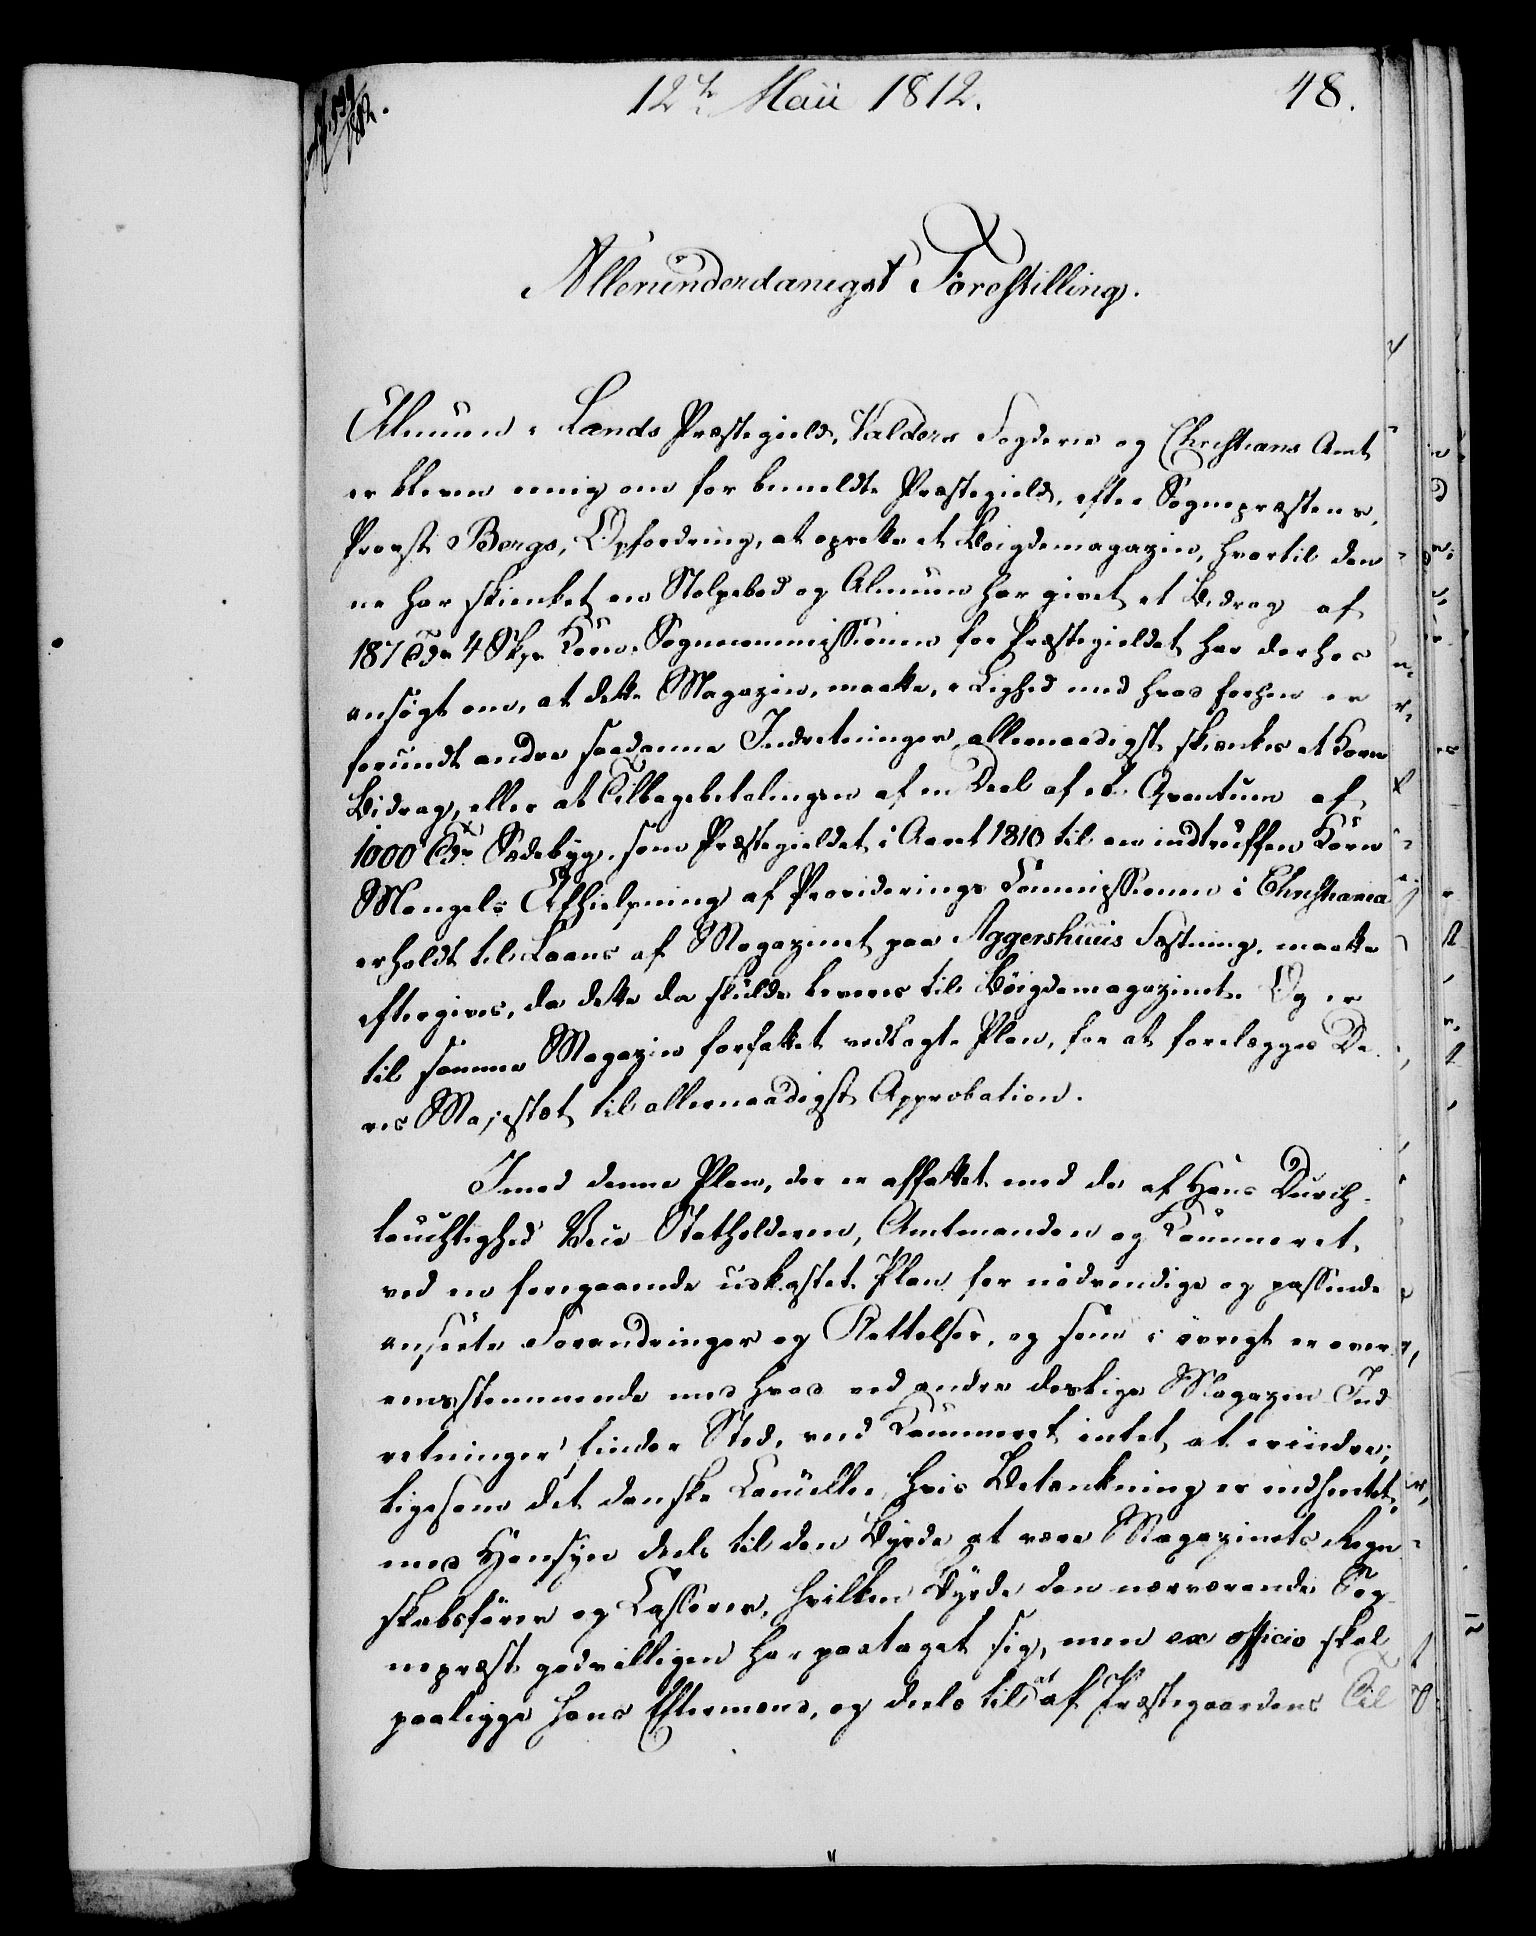 12te Maii 1812.
48.
Allerunderdanigst Forestilling.
Almuen i Lands Præstegield, Valders Fogderie og Christians Amt
er bleven eenig om for bemeldte Præstegield, efter Sognepræstens,
Provst Bergs, Opfordring, at oprette et Bøigdemagazin, hvortil den
ne har skienket en Stolpebod og Almuen har givet et Bidrag af
187 Tdr 4 Skpr Korn. Sognecommissionen for Præstegieldet har derhos
ansøgt om, at dette Magazin, maatte, i Lighed med hvad forhen er
forundt andre saadanne Indretninger, allernaadigst skienkes et Korn
Bidrag, eller at Tilbagebetalingen af en Deel af et Qvantum af
1000 Tdr Sædebyg, som Præstegieldet i Aaret 1810 til en indtruffen Korn
Mangels Afhielpning af Provideringscommissionen i Christiania
erholdt til Laans af Magazinet paa Aggershuus Fæstning, maatte
eftergives, da dette da skulde leveres til Bøigdemagazinet. Og er
til samme Magazin forfattet vedlagte Plan, for at forelægges De
res Majestæt til allernaadigst Approbation.
Imod denne Plan, der er affattet med de af Hans Durch-
lauchtighed Vice-Statholderen, Amtmanden og Kammeret,
ved en foregaaende udkastet Plan for nødvendige og passende
ansete Forandringer og Rettelser, og som i øvrigt er over
eensstemmende med hvad ved andre deslige Magazin-Ind
retninger finder Sted, ved Kammeret intet at erindre;
ligesom det danske Cancellie, hvis Betænkning er indhentet,
med Hensyn deels til den Byrde at være Magazinets Regn
skabsfører og Casserer, hvilken Byrde den nærværende Sog
nepræst godvilligen har paataget sig, men ex officio skal
paaligge hans Eftermænd, og deels til at af Præstegaardens Til